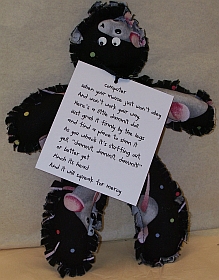 computer
When your mouse just won't obey
And won't work your way
Here's a little dammit doll
Just grab it firmly by the legs
and find a place to slam it
As you whack it's stuffing out
yell "dammit, dammit, dammit!"
or better yet
Mash its head
And it will squeak for mercy